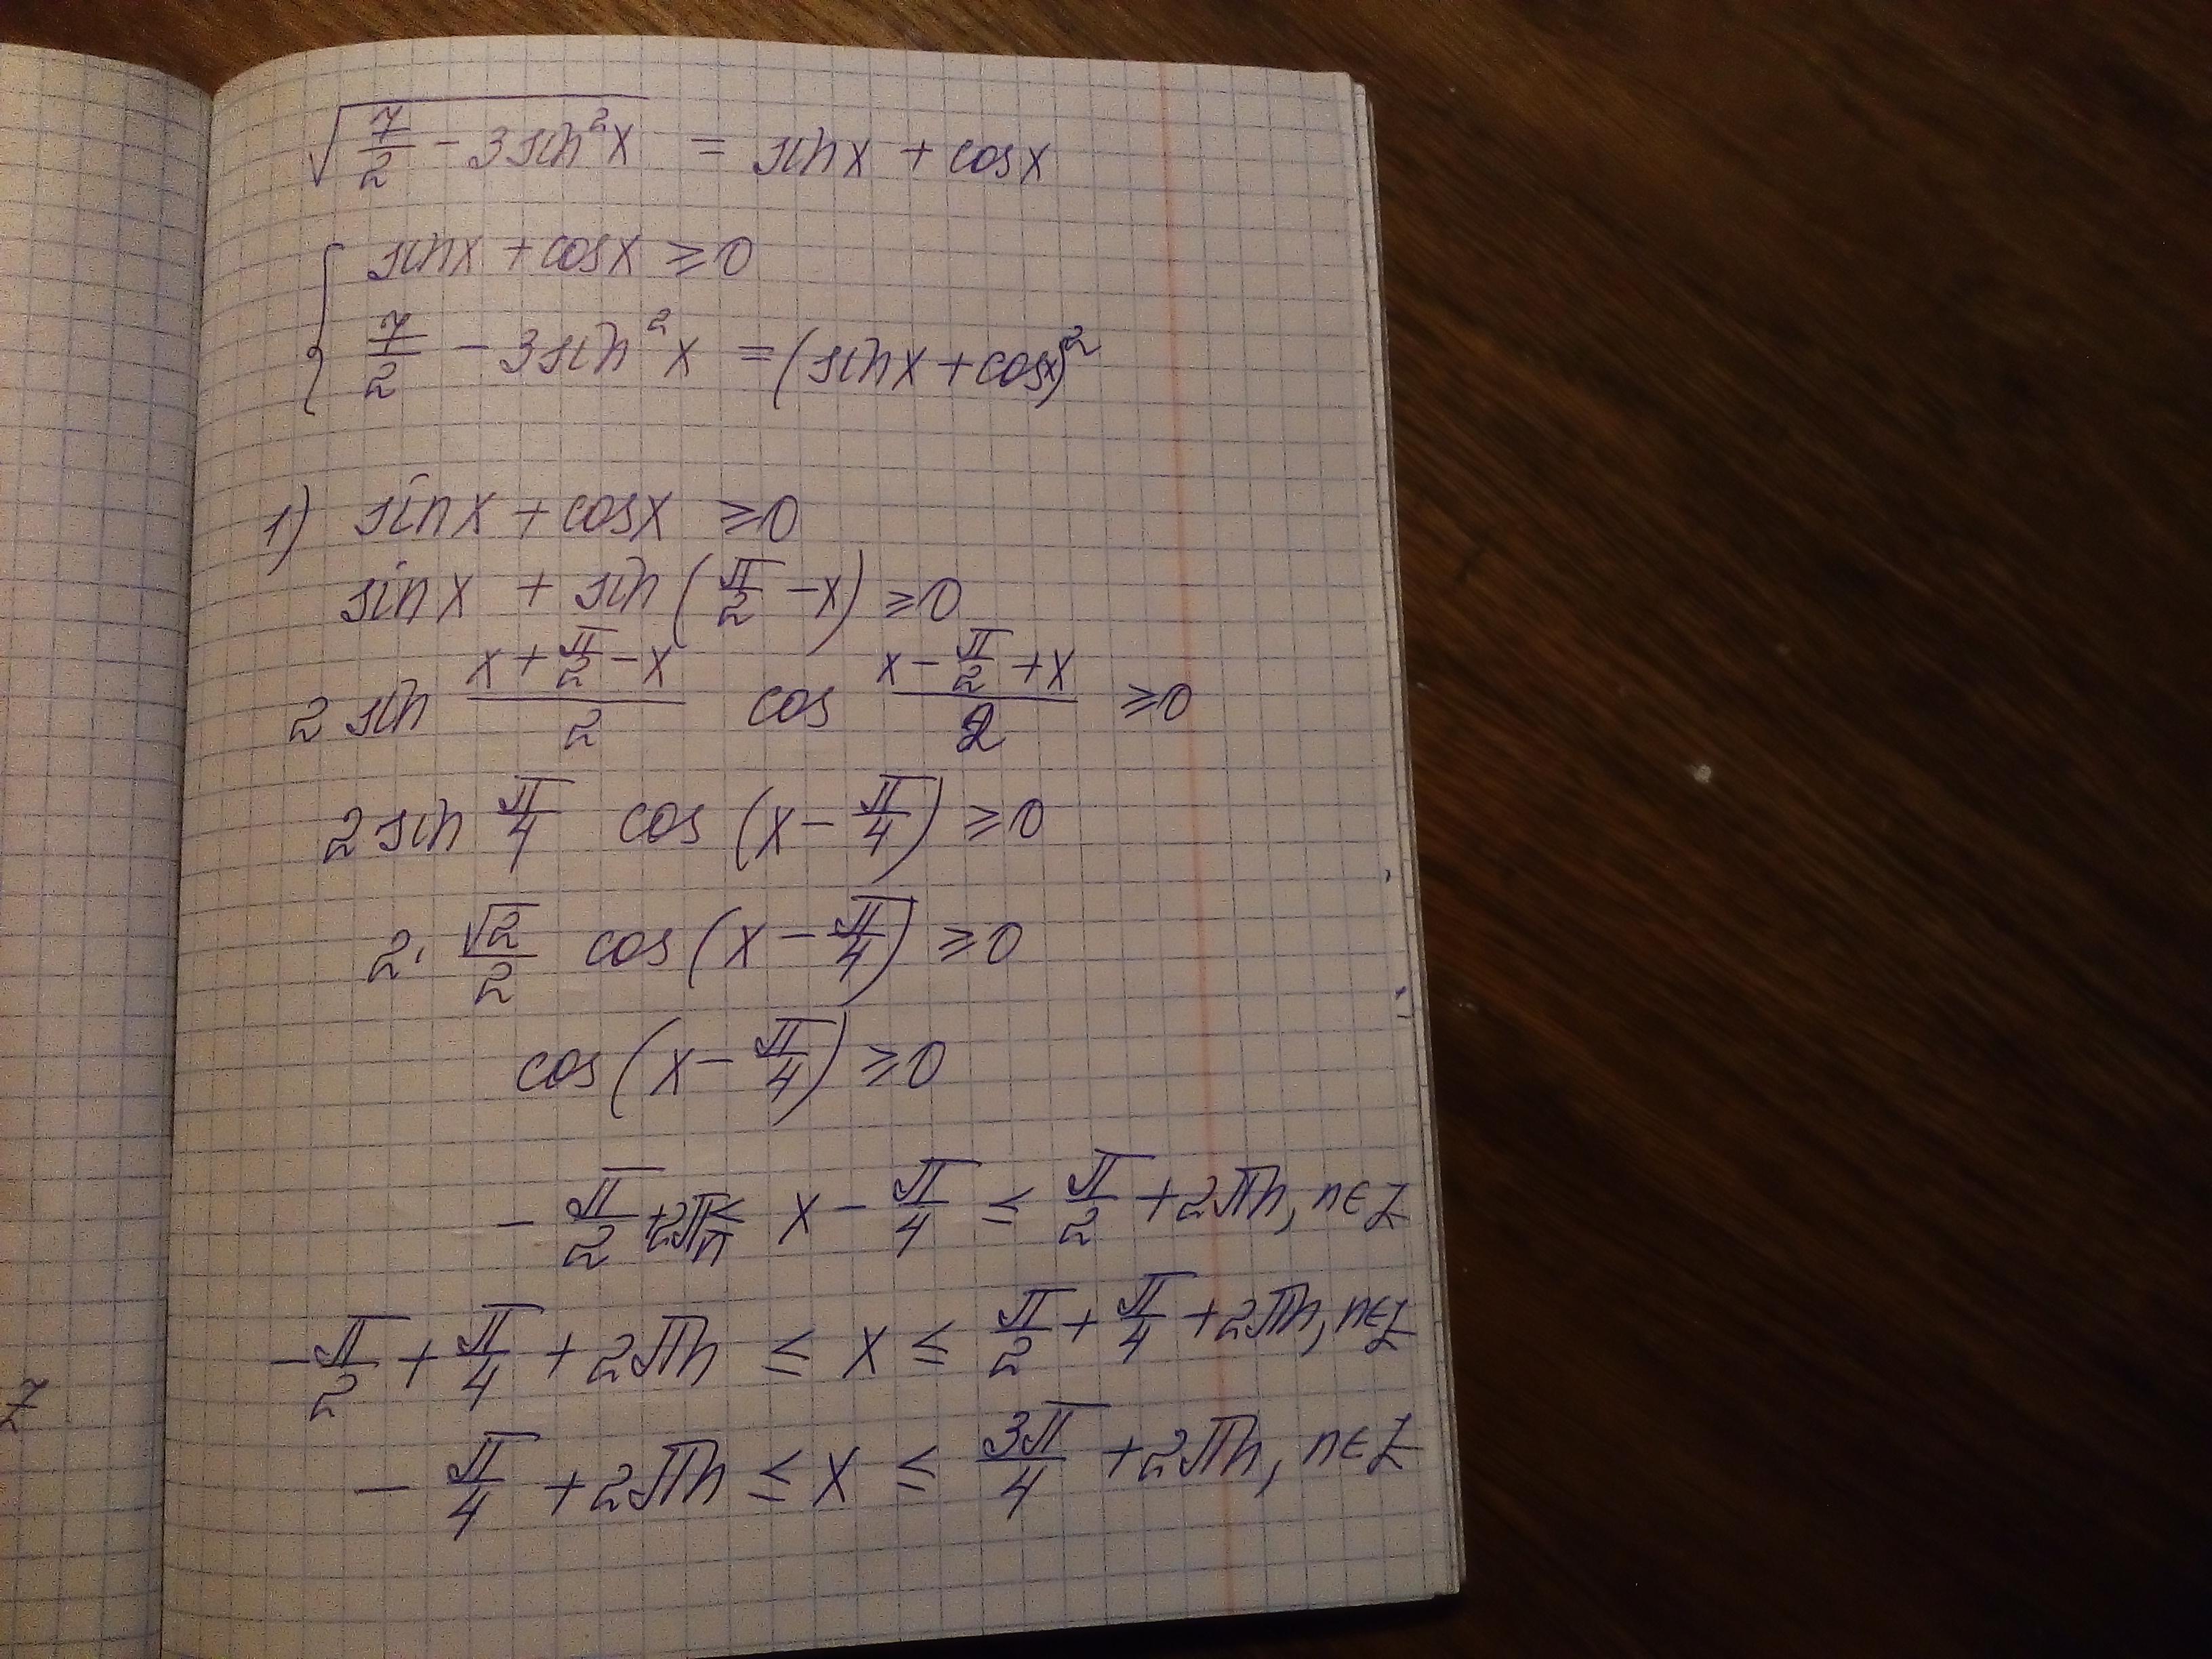 √(7/2 - 3sin²x) = sinx + cosx
{ sinx + cosx ≥ 0
7/2 - 3sin²x = (sinx + cosx)²
1) sinx + cosx ≥ 0
sinx + sin(π/2 - x) ≥ 0
2 sin (x + π/2 - x)/2 cos (x - π/2 + x)/2 ≥ 0
2 sin π/4 cos (x - π/4) ≥ 0
2 · √2/2 cos (x - π/4) ≥ 0
cos (x - π/4) ≥ 0
- π/2 + 2πn ≤ x - π/4 ≤ π/2 + 2πn, n∈Z
- π/2 + π/4 + 2πn ≤ x ≤ π/2 + π/4 + 2πn, n∈Z
- π/4 + 2πn ≤ x ≤ 3π/4 + 2πn, n∈Z
Z